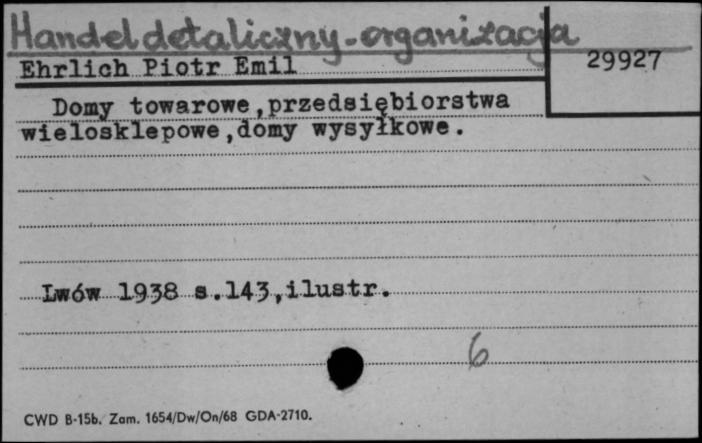 Handel detaliczny-organizacja
Ehrlich Piotr Emil
29927
Domy towarowe,przedsiębiorstwa
wielosklepowe,domy wysyłkowe.
Lwów 1938 s.143,ilustr.
6
CWD B-15b. Zam. 1654/Dw/On/68 GDA-2710.